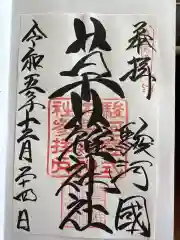 奉拝
駿河國
草薙神社
令和五年十二月二十四日